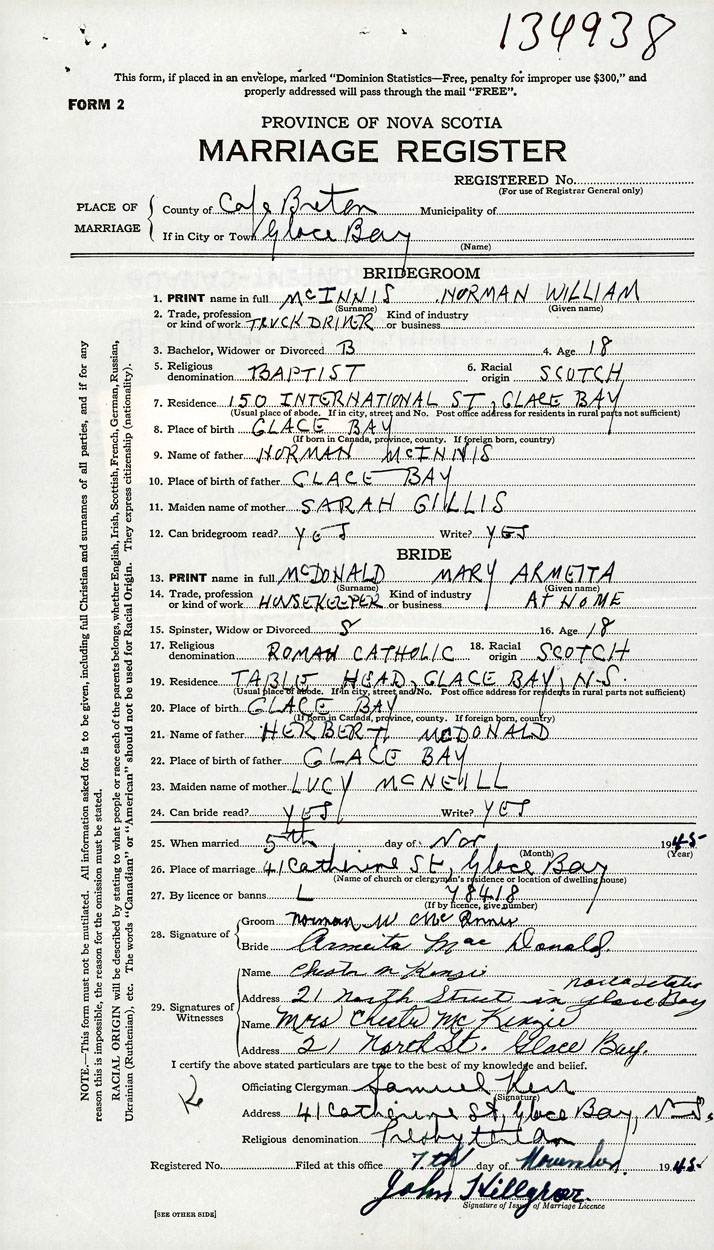 134938
This form, if placed in an envelope, marked "Dominion Statistics—Free, penalty for improper use $300," and
properly addressed will pass through the mail "FREE".
FORM 2
PROVINCE OF NOVA SCOTIA
MARRIAGE REGISTER
REGISTERED No.
(For use of Registrar General only)
PLACE OF MARRIAGE
County of Cape Breton Municipality of
If in City or Town Glace Bay
(Name)
BRIDEGROOM
1. PRINT name in full McINNIS NORMAN WILLIAM
(Surname) (Given name)
2. Trade, profession or kind of work TRUCK DRIVER Kind of industry or business
3. Bachelor, Widower or Divorced B 4. Age 18
5. Religious denomination BAPTIST 6. Racial origin SCOTCH
7. Residence 150 INTERNATIONAL ST, GLACE BAY
(Usual place of abode. If in city, street and No. Post office address for residents in rural parts not sufficient)
8. Place of birth GLACE BAY
(If born in Canada, province, county. If foreign born, country)
9. Name of father NORMAN McINNIS
10. Place of birth of father GLACE BAY
11. Maiden name of mother SARAH GILLIS
12. Can bridegroom read? YES Write? YES
BRIDE
13. PRINT name in full McDONALD MARY ARMEITA
(Surname) (Given name)
14. Trade, profession or kind of work HOUSEKEEPER Kind of industry or business AT HOME
15. Spinster, Widow or Divorced S 16. Age 18
17. Religious denomination ROMAN CATHOLIC 18. Racial origin SCOTCH
19. Residence TABLE HEAD, GLACE BAY, N.S.
(Usual place of abode. If in city, street and No. Post office address for residents in rural parts not sufficient)
20. Place of birth GLACE BAY
(If born in Canada, province, county. If foreign born, country)
21. Name of father HERBERT McDONALD
22. Place of birth of father GLACE BAY
23. Maiden name of mother LUCY McNEILL
24. Can bride read? YES Write? YES
25. When married 5th day of Nov 1945
(Month) (Year)
26. Place of marriage 41 Catherine St, Glace Bay
(Name of church or clergyman's residence or location of dwelling house)
27. By licence or banns L 78418
(If by licence, give number)
28. Signature of
Groom Norman W McInnis
Bride Armeita Mac Donald
29. Signatures of Witnesses
Name Chester McKenzie
Address 21 North Street in Glace Bay Nova Scotia
Name Mrs Chester McKenzie
Address 21 North St. Glace Bay.
I certify the above stated particulars are true to the best of my knowledge and belief.
Officiating Clergyman Samuel Kerr
(Signature)
Address 41 Catherine St, Glace Bay, N.S.
Religious denomination Presbyterian
Registered No. Filed at this office 7th day of November 1945
John Killgrar.
Signature of Issuer of Marriage Licence
[SEE OTHER SIDE]
NOTE.—This form must not be mutilated. All information asked for is to be given, including full Christian and surnames of all parties, and if for any
reason this is impossible, the reason for the omission must be stated.
RACIAL ORIGIN will be described by stating to what people or race each of the parents belongs, whether English, Irish, Scottish, French, German, Russian,
Ukrainian (Ruthenian), etc. The words "Canadian" or "American" should not be used for Racial Origin. They express citizenship (nationality).